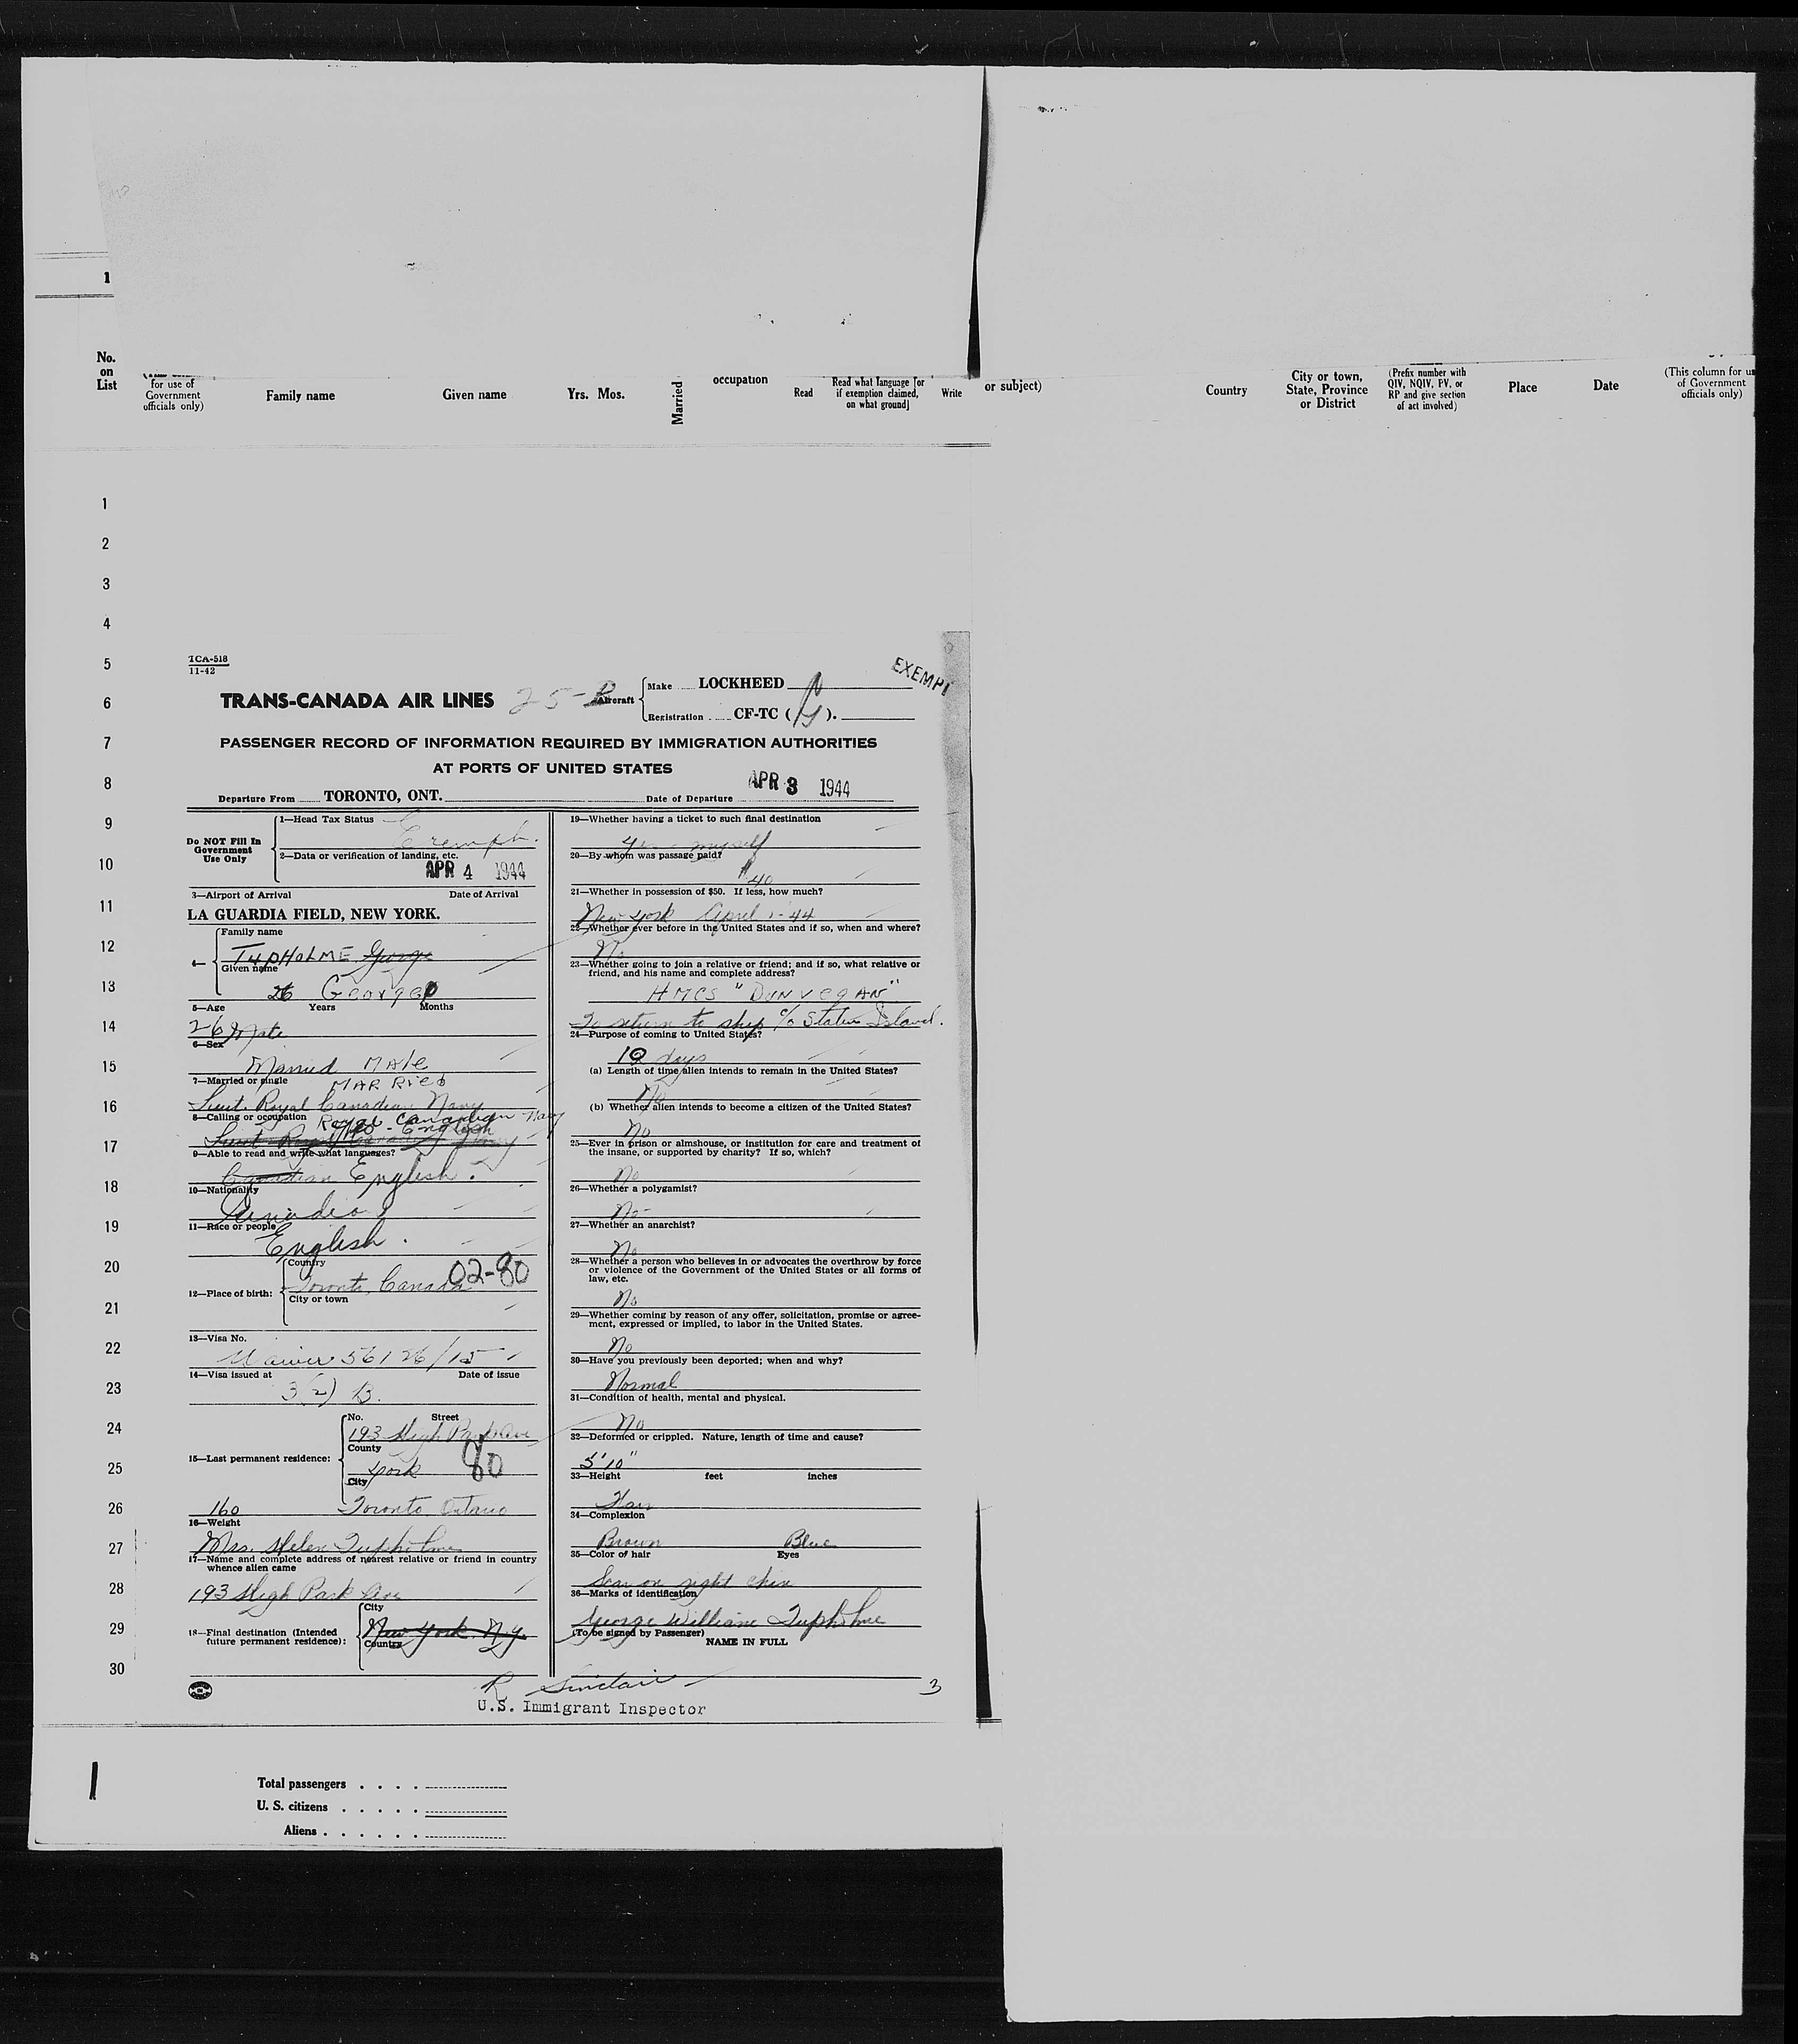 1
No.
on
List
for use of
Government
officials only)
Family name
Given name
Yrs. Mos.
Married
occupation
Read
Read what language [or
if exemption claimed,
on what ground]
Write
or subject)
Country
City or town,
State, Province
or District
(Prefix number with
QIV, NQIV, PV, or
RP and give section
of act involved)
Place
Date
(This column for us
of Government
officials only)
1
2
3
4
5
6
7
8
9
10
11
12
13
14
15
16
17
18
19
20
21
22
23
24
25
26
27
28
29
30
TCA-518
11-42
EXEMPT
TRANS-CANADA AIR LINES
Aircraft
Make LOCKHEED
Registration CF-TC ( ).
PASSENGER RECORD OF INFORMATION REQUIRED BY IMMIGRATION AUTHORITIES
AT PORTS OF UNITED STATES
Departure From TORONTO, ONT. Date of Departure APR 3 1944
Do NOT Fill In
Government
Use Only
1—Head Tax Status
Exempt.
2—Data or verification of landing, etc.
APR 4 1944
3—Airport of Arrival Date of Arrival
LA GUARDIA FIELD, NEW YORK.
4— Family name
TupHOLME George
Given name
26 George
5—Age Years Months
26 Male
6—Sex
Married MAle
7—Married or single
MARRied
Lieut. Royal Canadian Navy
8—Calling or occupation Royal Canadian Navy
Yes - English
Lieut Royal Canadian Navy
9—Able to read and write what languages?
Canadian English.
10—Nationality
Canadian
11—Race or people
English.
12—Place of birth:
Country
Toronto, Canada 02-80
City or town
13—Visa No.
Waiver 56126/15
14—Visa issued at Date of issue
3(2) B.
15—Last permanent residence:
No. Street
193 High Park Ave
County
York 80
City
160 Toronto Ontario
16—Weight
Mrs. Helen Tupholme
17—Name and complete address of nearest relative or friend in country
whence alien came
193 High Park Ave
18—Final destination (Intended
future permanent residence):
City
New York. N.Y.
Country
19—Whether having a ticket to such final destination
Yes myself
20—By whom was passage paid?
$40
21—Whether in possession of $50. If less, how much?
New York April 1-44
22—Whether ever before in the United States and if so, when and where?
No
23—Whether going to join a relative or friend; and if so, what relative or
friend, and his name and complete address?
HMCS "DUNVEGAN"
To return to ship c/o Staten Island.
24—Purpose of coming to United States?
10 days
(a) Length of time alien intends to remain in the United States?
No
(b) Whether alien intends to become a citizen of the United States?
No
25—Ever in prison or almshouse, or institution for care and treatment of
the insane, or supported by charity? If so, which?
No
26—Whether a polygamist?
No
27—Whether an anarchist?
No
28—Whether a person who believes in or advocates the overthrow by force
or violence of the Government of the United States or all forms of
law, etc.
No
29—Whether coming by reason of any offer, solicitation, promise or agree-
ment, expressed or implied, to labor in the United States.
No
30—Have you previously been deported; when and why?
Normal
31—Condition of health, mental and physical.
No
32—Deformed or crippled. Nature, length of time and cause?
5'10"
33—Height feet inches
Fair
34—Complexion
Brown Blue
35—Color of hair Eyes
Scar on right chin
36—Marks of identification
George William Tupholme
(To be signed by Passenger)
NAME IN FULL
R Sinclair
U.S. Immigrant Inspector
3
Total passengers
U. S. citizens
Aliens